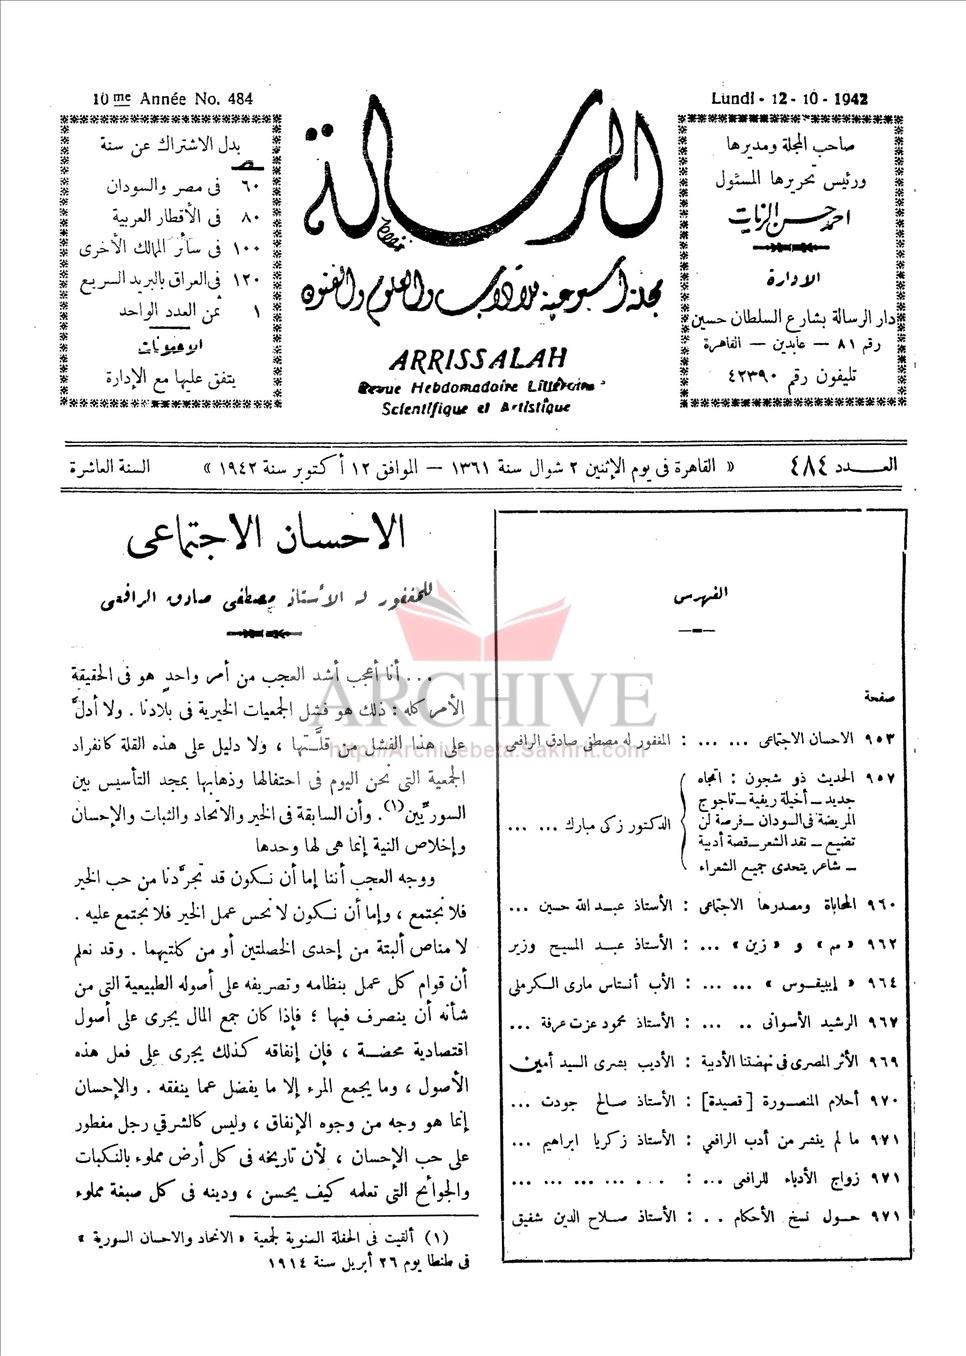 10me Année No. 484
Lundi - 12 - 10 - 1942
بدل الاشتراك عن سنة
٦٠ فى مصر والسودان
٨٠ فى الأقطار العربية
١٠٠ فى سائر الممالك الأخرى
١٢٠ فى العراق بالبريد السريع
١ ثمن العدد الواحد
الاعلانات
يتفق عليها مع الإدارة
الرسالة
مجلة أسبوعية للآداب والعلوم والفنون
ARRISSALAH
Revue Hebdomadaire Littéraire
Scientifique et Artistique
صاحب المجلة ومديرها
ورئيس تحريرها المسئول
احمد حسن الزيات
الادارة
دار الرسالة بشارع السلطان حسين
رقم ٨١ — عابدين — القاهرة
تليفون رقم ٤٢٣٩٠
العــدد ٤٨٤
« القاهرة فى يوم الإثنين ٢ شوال سنة ١٣٦١ — الموافق ١٢ أكتوبر سنة ١٩٤٢ »
السنة العاشرة
الفهرس
صفحة
٩٥٣ الاحسان الاجتماعى ... ... : المغفور له مصطفى صادق الرافعى
٩٥٧ الحديث ذو شجون : اتجاه
جديد ــ أخيلة ريفية ــ تاجوج
المريضة فى السودان ــ فرصة لن
تضيع ــ نقد الشعر ــ قصة أدبية
ــ شاعر يتحدى جميع الشعراء
الدكتور زكى مبارك ... ...
٩٦٠ المحاباة ومصدرها الاجتماعى : الأستاذ عبد الله حسين ...
٩٦٢ « م » و « زين » ... : الأستاذ عبد المسيح وزير
٩٦٤ « إيبيقوس » ... ... : الأب أنستاس مارى الكرملى
٩٦٧ الرشيد الأسوانى .. ... : الأستاذ محمود عزت عرفة ...
٩٦٩ الأثر المصرى فى نهضتنا الأدبية : الأديب بشرى السيد أمين
٩٧٠ أحلام المنصورة [ قصيدة ] : الأستاذ صالح جودت ...
٩٧١ ما لم ينشر من أدب الرافعى : الأستاذ زكريا ابراهيم ...
٩٧١ زواج الأدباء للرافعى ... : . ... ... ... ...
٩٧١ حول نسخ الأحكام .. . : الأستاذ صلاح الدين شفيق
الاحسان الاجتماعى
للمغفور له الأستاذ مصطفى صادق الرافعى
... أنا أعجب أشد العجب من أمر واحدٍ هو فى الحقيقة
الأمر كله : ذلك هو فشل الجمعيات الخيرية فى بلادنا . ولا أدلَّ
على هذا الفشل من قلَّتها ، ولا دليل على هذه القلة كانفراد
الجمعية التى نحن اليوم فى احتفالها وذهابها بمجد التأسيس بين
السوريِّين(١). وأن السابقة فى الخير والاتحاد والثبات والإحسان
وإخلاص النية إنما هى لها وحدها
ووجه العجب أننا إما أن نكون قد تجرَّدنا من حب الخير
فلا نجتمع ، وإما أن نكون لا نحس عمل الخير فلا نجتمع عليه .
لا مناص ألبتة من إحدى الخصلتين أو من كلتيهما . وقد نعلم
أن قوام كل عمل بنظامه وتصريفه على أصوله الطبيعية التى من
شأنه أن ينصرف فيها ؛ فإذا كان جمع المال يجرى على أصول
اقتصادية محضة ، فإن إنفاقه كذلك يجرى على فعل هذه
الأصول ، وما يجمع المرء إلا ما يفضل عما ينفقه . والإحسان
إنما هو وجه من وجوه الإنفاق ، وليس كالشرقي رجل مفطور
على حب الإحسان ، لأن تاريخه فى كل أرض مملوء بالنكبات
والجوائح التى تعلمه كيف يحسن ، ودينه فى كل صبغة مملوء
(١) ألقيت فى الحفلة السنوية لجمعية « الاتحاد والاحسان السورية »
فى طنطا يوم ٢٦ أبريل سنة ١٩١٤
ARCHIVE
http://Archivebeta.Sakhrit.com